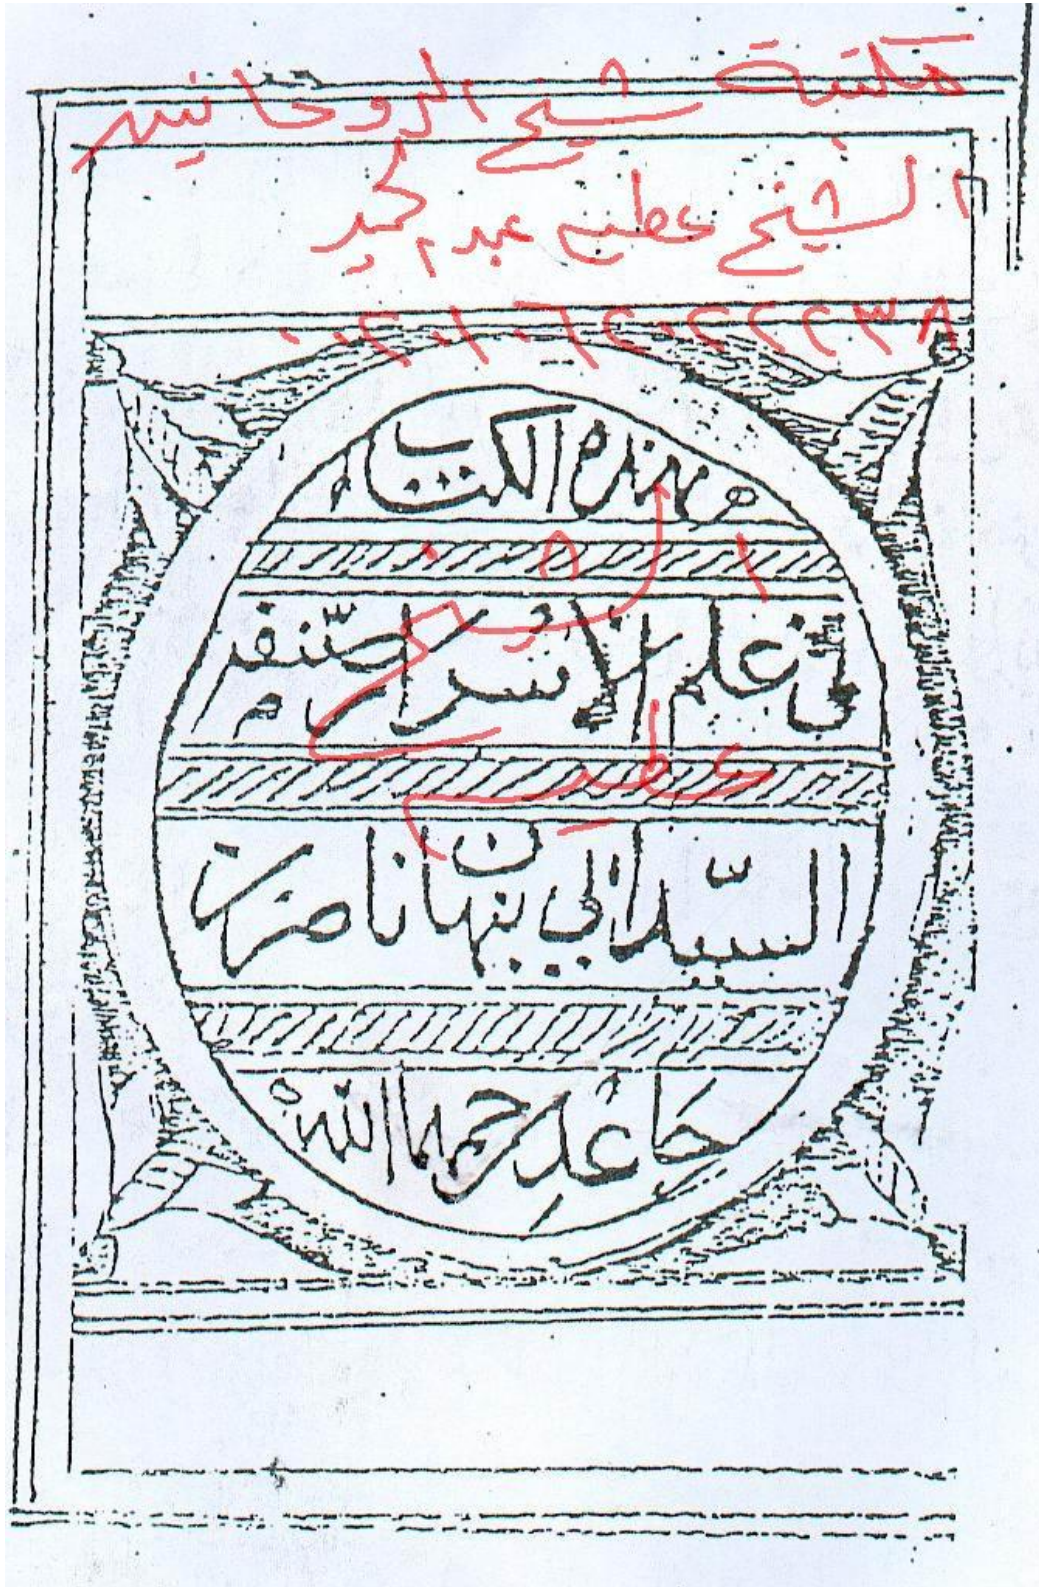 مكتبة شيخ الروحانيين
الشيخ عطيه عبد الحميد
٠٠٢٠١٠٦٢٠٢٢٢٢٣٨
وهذه الكتاب
الشيخ
في علم الاسرار صنفه
عطيه
السيد ابي نبهان ناصر بن
جاعد رحمهما الله